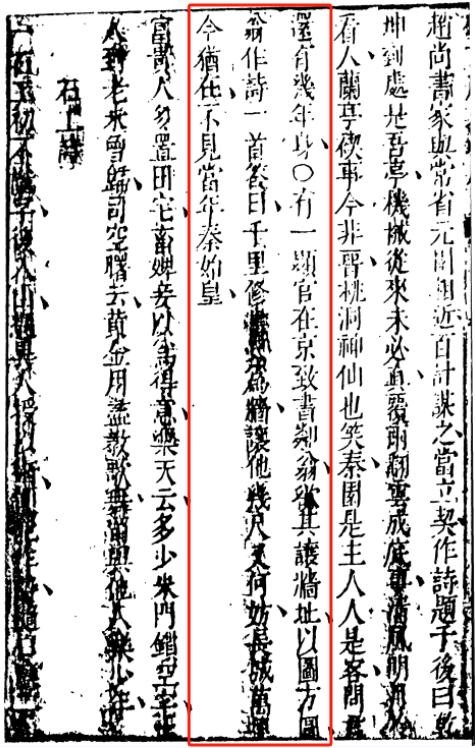 趙尚書家與常省元園圃相近百計謀之當立契作詩題于後曰乾
坤到處是吾亭機械從來未必真覆雨翻雲成底事清風明月
看人蘭亭禊事今非晉桃洞神仙也笑秦園是主人人是客問君
還有幾年身○有一顯官在京致書鄰翁欲其讓牆址以圖方圓
翁作詩一首答曰千里修為牆讓他幾尺又何妨長城萬里
今猶在不見當年秦始皇
富貴人多置田宅畜婢妾以為得意樂天云多少朱門鎖空宅
人到老來曾歸司空曙云黃金用盡教歌舞留與他人樂少年
石上詩
初不識字後入山遇異人授以